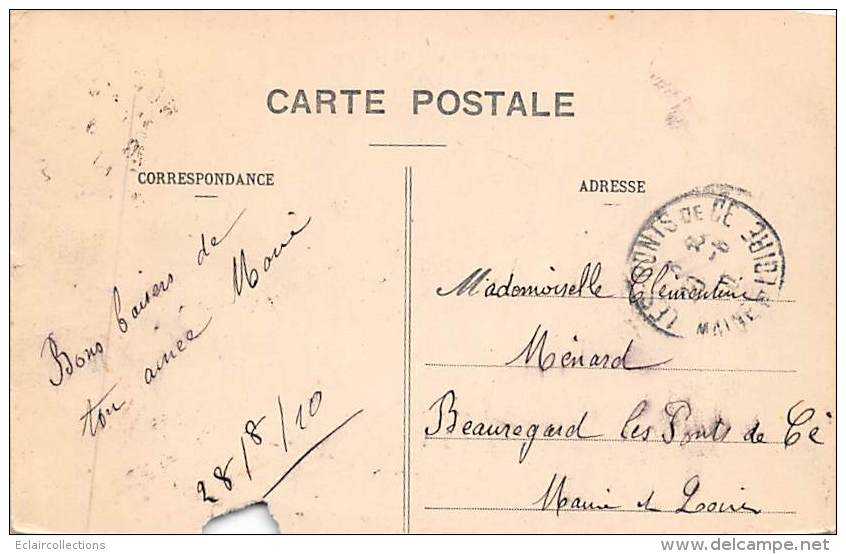 CARTE POSTALE
CORRESPONDANCE
ADRESSE
Bons baisers de
ton aimée Marie
28/8/10
LES PONTS DE CÉ
MAINE & LOIRE
Mademoiselle Clémentine
Ménard
Beauregard les Ponts de Cé
Maine & Loire
Eclaircollections
www.delcampe.net